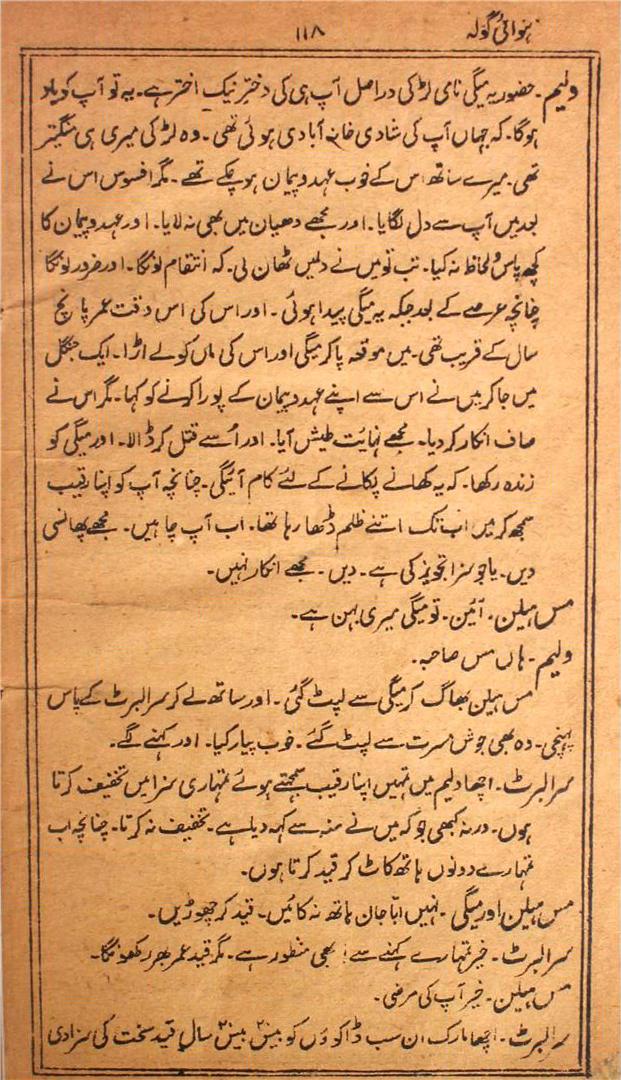 ہوائی گولہ ۱۱۸
ولیم۔ حضور یہ میگی نامی لڑکی دراصل آپ ہی کی دختر نیک اختر ہے۔ یہ تو آپ کو یاد
ہوگا۔ کہ جہاں آپ کی شادی خانہ آبادی ہوئی تھی۔ وہ لڑکی میری ہی منگیتر
تھی۔ میرے ساتھ اس کے خوب عہد و پیمان ہو چکے تھے۔ مگر افسوس اس نے
بعد میں آپ سے دل لگایا۔ اور مجھے دھیان میں بھی نہ لایا۔ اور عہد و پیمان کا
کچھ پاس و لحاظ نہ کیا۔ تب تو میں نے دلمیں ٹھان لی۔ کہ انتقام لونگا۔ اور ضرور لونگا
چنانچہ عرصے کے بعد جبکہ یہ میگی پیدا ہوئی۔ اور اس کی اس وقت عمر پانچ
سال کے قریب تھی۔ میں موقعہ پا کر میگی اور اس کی ماں کو لے اڑا۔ ایک جنگل
میں جا کر میں نے اس سے اپنے عہد و پیمان کے پورا کرنے کو کہا۔ مگر اس نے
صاف انکار کر دیا۔ مجھے نہایت طیش آیا۔ اور اُسے قتل کر ڈالا۔ اور میگی کو
زندہ رکھا۔ کہ یہ کھانے پکانے کے لئے کام آئیگی۔ چنانچہ آپ کو اپنا رقیب
سمجھ کر میں اب تک اتنے ظلم ڈھا رہا تھا۔ اب آپ چاہیں۔ مجھے پھانسی
دیں۔ یا جو سزا تجویز کی ہے۔ دیں۔ مجھے انکار نہیں۔
مس ہیلن۔ آئیں۔ تو میگی میری بہن ہے۔
ولیم۔ ہاں مس صاحبہ۔
مس ہیلن بھاگ کر میگی سے لپٹ گئی۔ اور ساتھ لے کر سر البرٹ کے پاس
پہنچی۔ وہ بھی جوش مسرت سے لپٹ گئے۔ خوب پیار کیا۔ اور کہنے لگے۔
سر البرٹ۔ اچھا ولیم میں تمہیں اپنا رقیب سمجھتے ہوئے تمہاری سزا میں تخفیف کرتا
ہوں۔ ورنہ کبھی جو کہ میں نے منہ سے کہہ دیا ہے۔ تخفیف نہ کرتا۔ چنانچہ اب
تمہارے دونوں ہاتھ کاٹ کر قید کرتا ہوں۔
مس ہیلن اور میگی۔ نہیں ابا جان ہاتھ نہ کاٹیں۔ قید کر چھوڑیں۔
سر البرٹ۔ خیر تمہارے کہنے سے یہ بھی منظور ہے۔ مگر قید عمر بھر رکھونگا۔
مس ہیلن۔ خیر آپ کی مرضی۔
سر البرٹ۔ اچھا مارک ان سب ڈاکوؤں کو بیس ۲۰ بیس ۲۰ سال قید سخت کی سزا دی